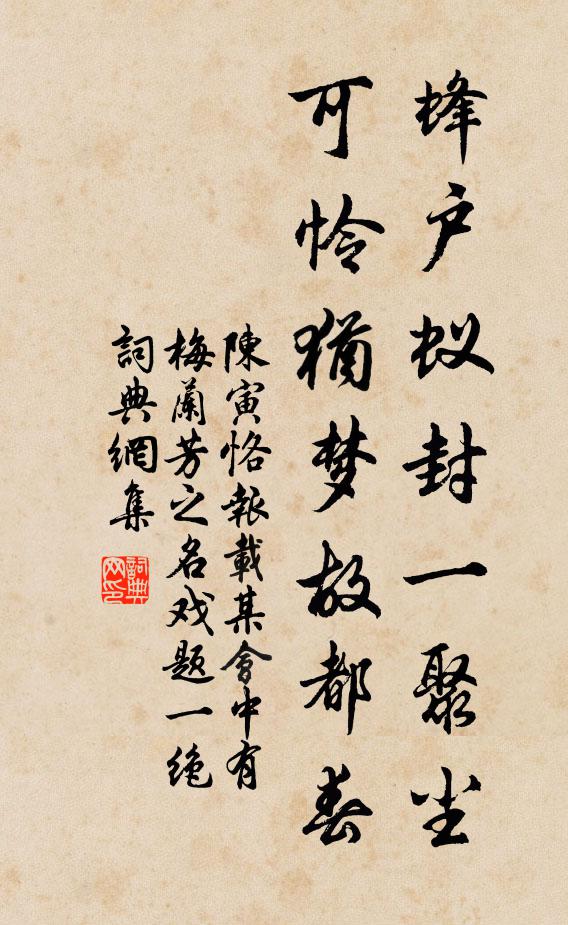 蜂户蚁封一聚尘
可怜猶梦故都春
陳寅恪報載某會中有
梅蘭芳之名戏题一绝
詞典網集
詞典网印